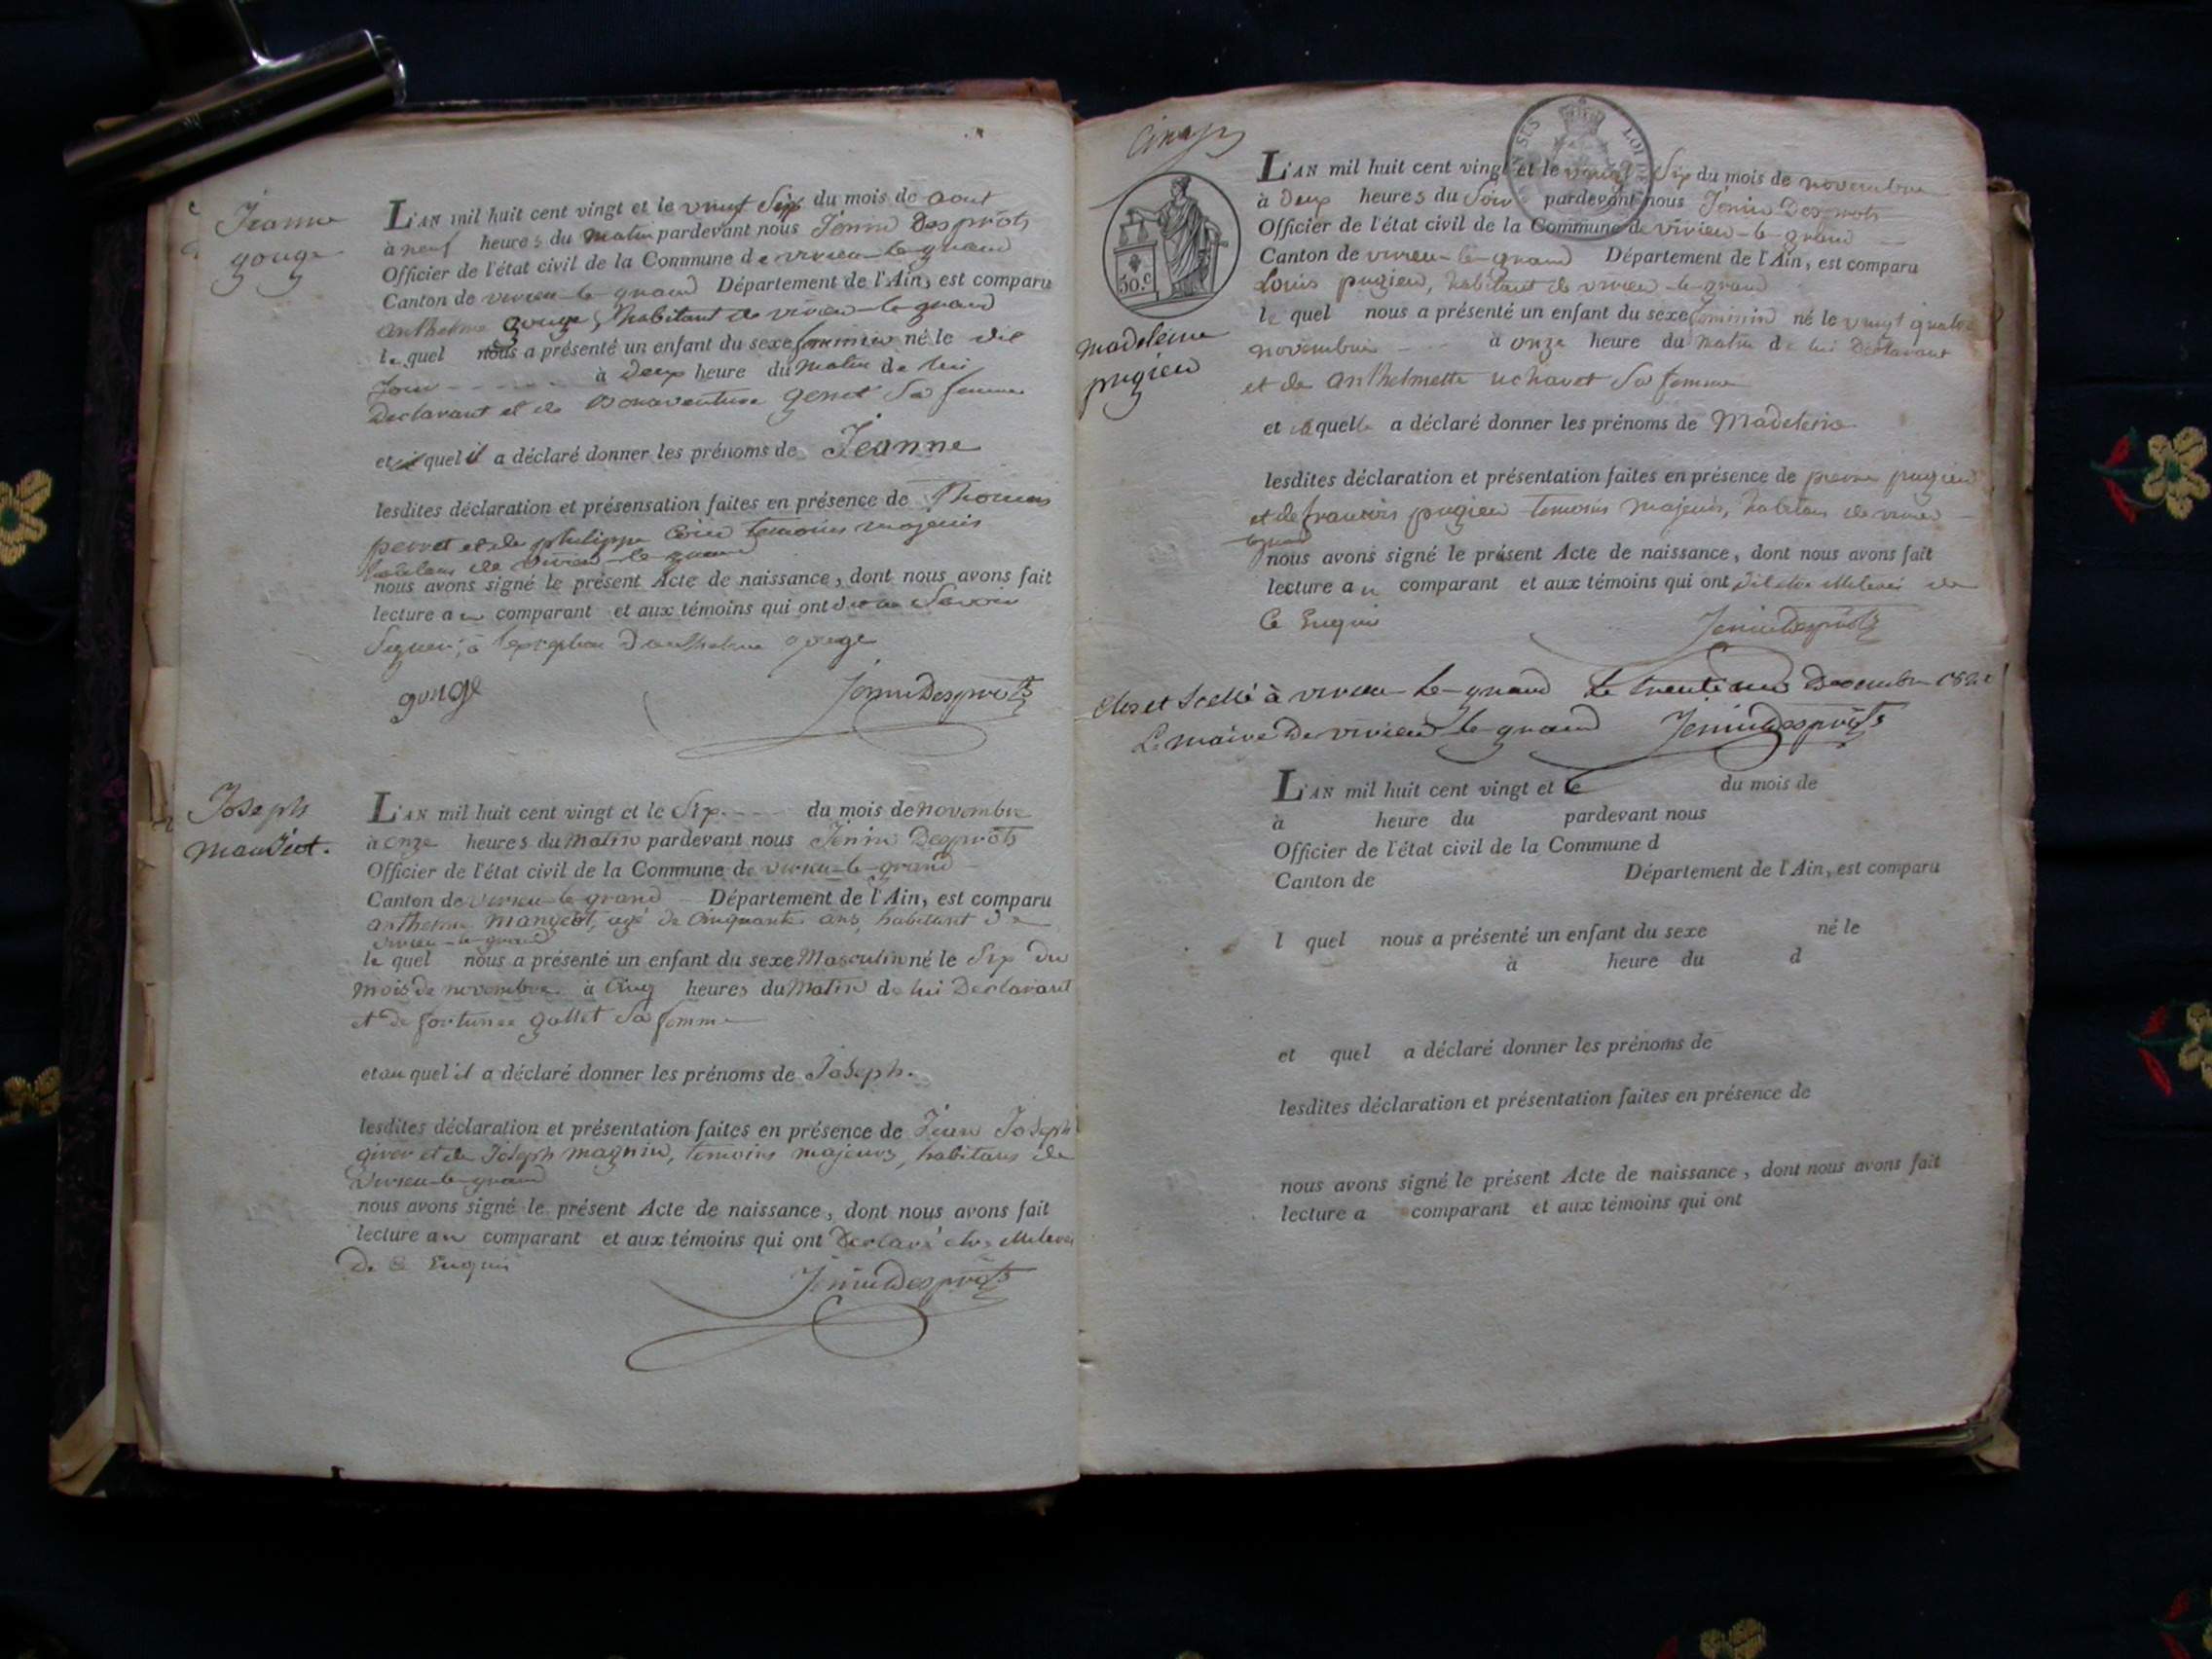 Jeanne
gouge
L'AN mil huit cent vingt et le vingt Six du mois de aout
à neuf heures du matin pardevant nous Jenin Desprots
Officier de l'état civil de la Commune de virieu-le-grand
Canton de virieu-le-grand Département de l'Ain, est comparu
anthelme gouge, habitant de virieu-le-grand
lequel nous a présenté un enfant du sexe feminin né le dit
jour à deux heure du matin de lui
Declarant et de Bonaventure genet Sa femme
et quel il a déclaré donner les prénoms de Jeanne
lesdites déclaration et présensation faites en présence de Thomas
perret et de philippe temoins majeurs
habitans de virieu-le-grand
nous avons signé le présent Acte de naissance, dont nous avons fait
lecture au comparant et aux témoins qui ont Savoir
Signer, à l'exception D'anthelme gouge
gouge
JeninDesprots
Joseph
L'AN mil huit cent vingt et le Six du mois de novembre
à onze heures du matin pardevant nous Jenin Desprots
Officier de l'état civil de la Commune de virieu-le-grand
Canton de virieu-le-grand Département de l'Ain, est comparu
anthelme agé de Cinquante ans, habitant de
virieu-le-grand
lequel nous a présenté un enfant du sexe Masculin né le Six du
mois de novembre à Cinq heures du Matin de lui Declarant
et de fortunee gallet Sa femme
et au quel il a déclaré donner les prénoms de Joseph.
lesdites déclaration et présentation faites en présence de Jean Joseph
et de Joseph magnin, temoins majeurs, habitans de
Virieu-le-grand
nous avons signé le présent Acte de naissance, dont nous avons fait
lecture au comparant et aux témoins qui ont Declaré
De Ce Enquis
JeninDesprots
Cinq
50.c
LOI
madeleine
pugieu
L'AN mil huit cent vingt et le vingt Six du mois de novembre
à Deux heures du Soir pardevant nous Jenin Desprots
Officier de l'état civil de la Commune de virieu-le-grand
Canton de virieu-le-grand Département de l'Ain, est comparu
Louis pugieu, habitant de virieu-le-grand
lequel nous a présenté un enfant du sexe feminin né le vingt quatre
novembre à onze heure du matin de lui Déclarant
et de anthelmette uchavet Sa femme
et a quelle a déclaré donner les prénoms de Madeleine
lesdites déclaration et présentation faites en présence de pierre pugieu
et de francois pugieu temoins majeurs, habitans de virieu
le grand
nous avons signé le présent Acte de naissance, dont nous avons fait
lecture au comparant et aux témoins qui ont de
Ce Enquis
JeninDesprots
Clos et à virieu-le-grand Le trente un Decembre
Le maire De virieu-le-grand JeninDesprots
L'AN mil huit cent vingt et le du mois de
à heure du pardevant nous
Officier de l'état civil de la Commune d
Canton de Département de l'Ain, est comparu
l quel nous a présenté un enfant du sexe né le
à heure du d
et quel a déclaré donner les prénoms de
lesdites déclaration et présentation faites en présence de
nous avons signé le présent Acte de naissance, dont nous avons fait
lecture a comparant et aux témoins qui ont